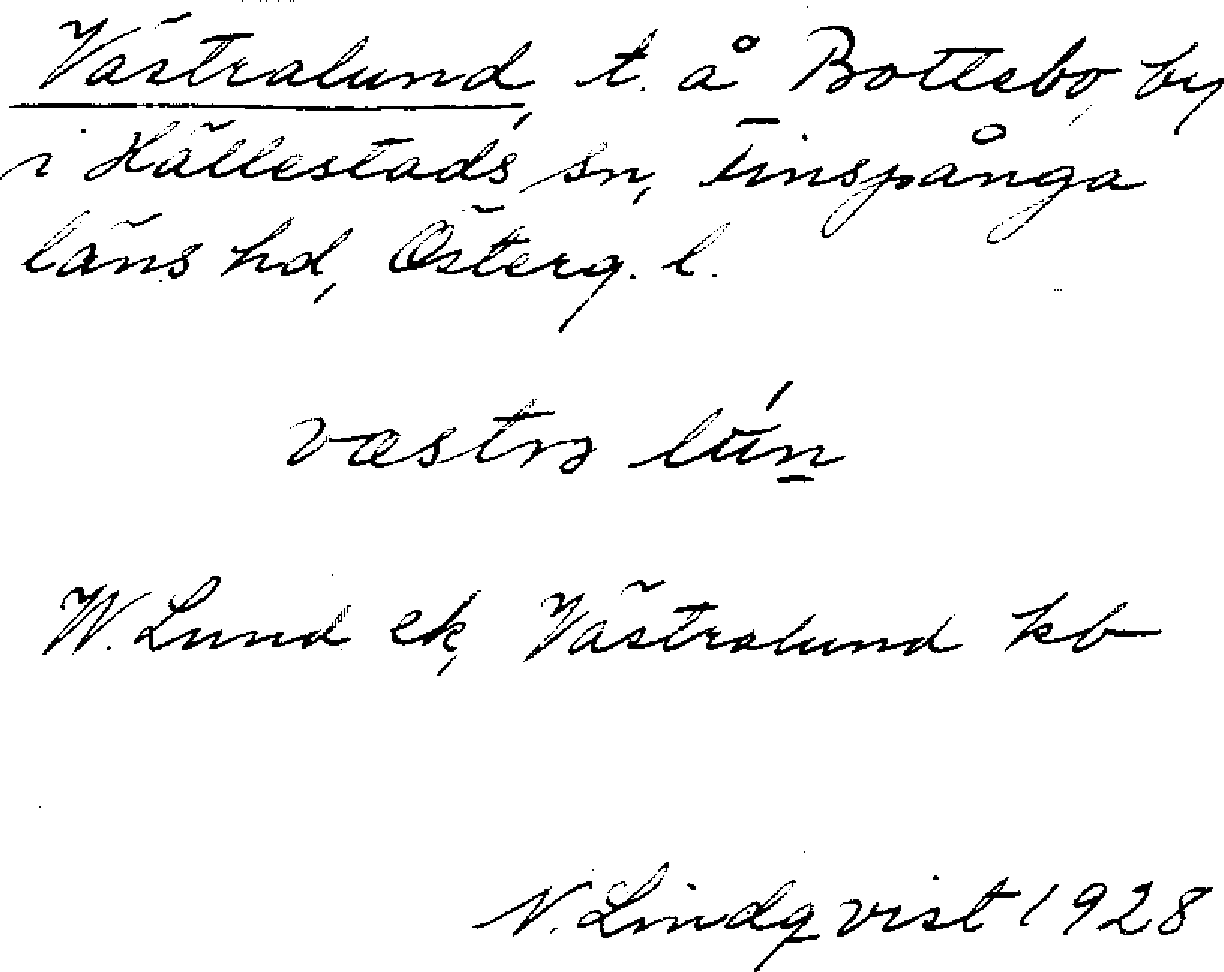 Västralund, t. å Bottebo, by
i Hällestads sn, Finspånga
läns hd, Österg. l.
væstra lún
W. Lund ek, Västralund kb
N. Lindqvist 1928